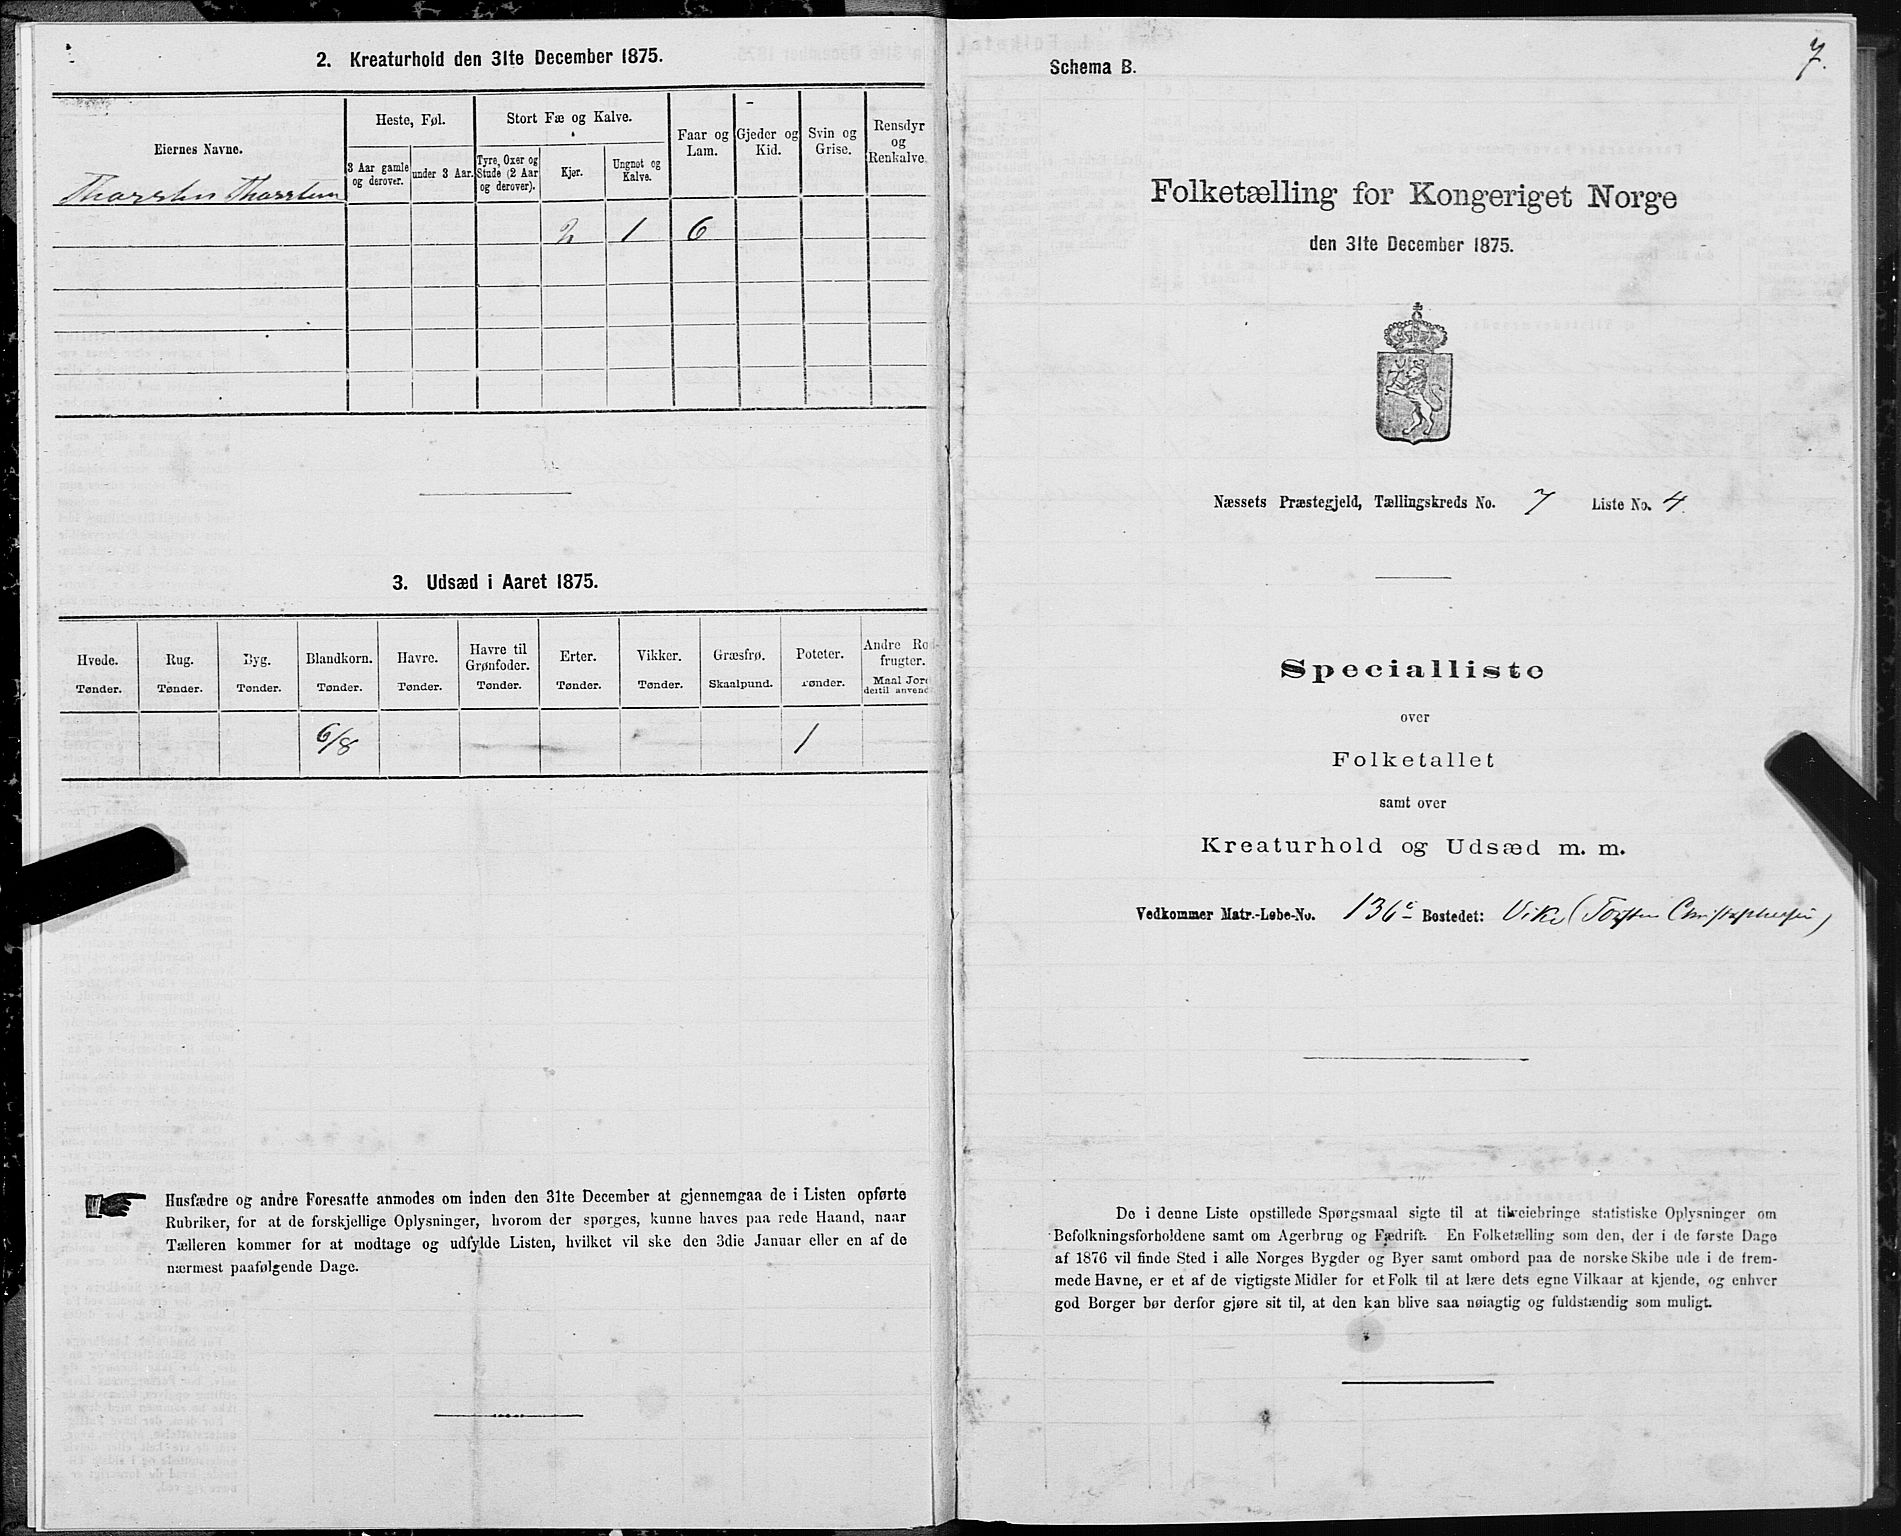 2. Kreaturhold den 31te December 1875.
Eiernes Navne.
Heste, Føl.
Stort Fæ og Kalve.
Faar og Lam.
Gjeder og Kid.
Svin og Grise.
Rensdyr og Renkalve.
3 Aar gamle og derover.
under 3 Aar.
Tyre, Oxer og Stude (2 Aar og derover).
Kjør.
Ungnøt og Kalve.
2 1 6
3. Udsæd i Aaret 1875.
Hvede. Tønder.
Rug. Tønder.
Byg. Tønder.
Blandkorn. Tønder.
Havre. Tønder.
Havre til Grønfoder. Tønder.
Erter. Tønder.
Vikker. Tønder.
Græsfrø. Skaalpund.
Poteter. Tønder.
Andre Rod-frugter. Maal Jord dertil anvendt
6/8 1
Husfædre og andre Foresatte anmodes om inden den 31te December at gjennemgaa de i Listen opførte
Rubriker, for at de forskjellige Oplysninger, hvorom der spørges, kunne haves paa rede Haand, naar
Tælleren kommer for at modtage og udfylde Listen, hvilket vil ske den 3die Januar eller en af de
nærmest paafølgende Dage.
7.
Schema B.
Folketælling for Kongeriget Norge
den 31te December 1875.
Næssets Præstegjeld, Tællingskreds No. 7 Liste No. 4.
Specialliste
over
Folketallet
samt over
Kreaturhold og Udsæd m. m.
Vedkommer Matr.-Løbe-No. 136c Bostedet: Vike (Torsten Christophersen)
De i denne Liste opstillede Spørgsmaal sigte til at tilveiebringe statistiske Oplysninger om
Befolkningsforholdene samt om Agerbrug og Fædrift. En Folketælling som den, der i de første Dage
af 1876 vil finde Sted i alle Norges Bygder og Byer samt ombord paa de norske Skibe ude i de frem-
mede Havne, er et af de vigtigste Midler for et Folk til at lære dets egne Vilkaar at kjende, og enhver
god Borger bør derfor gjøre sit til, at den kan blive saa nøiagtig og fuldstændig som muligt.